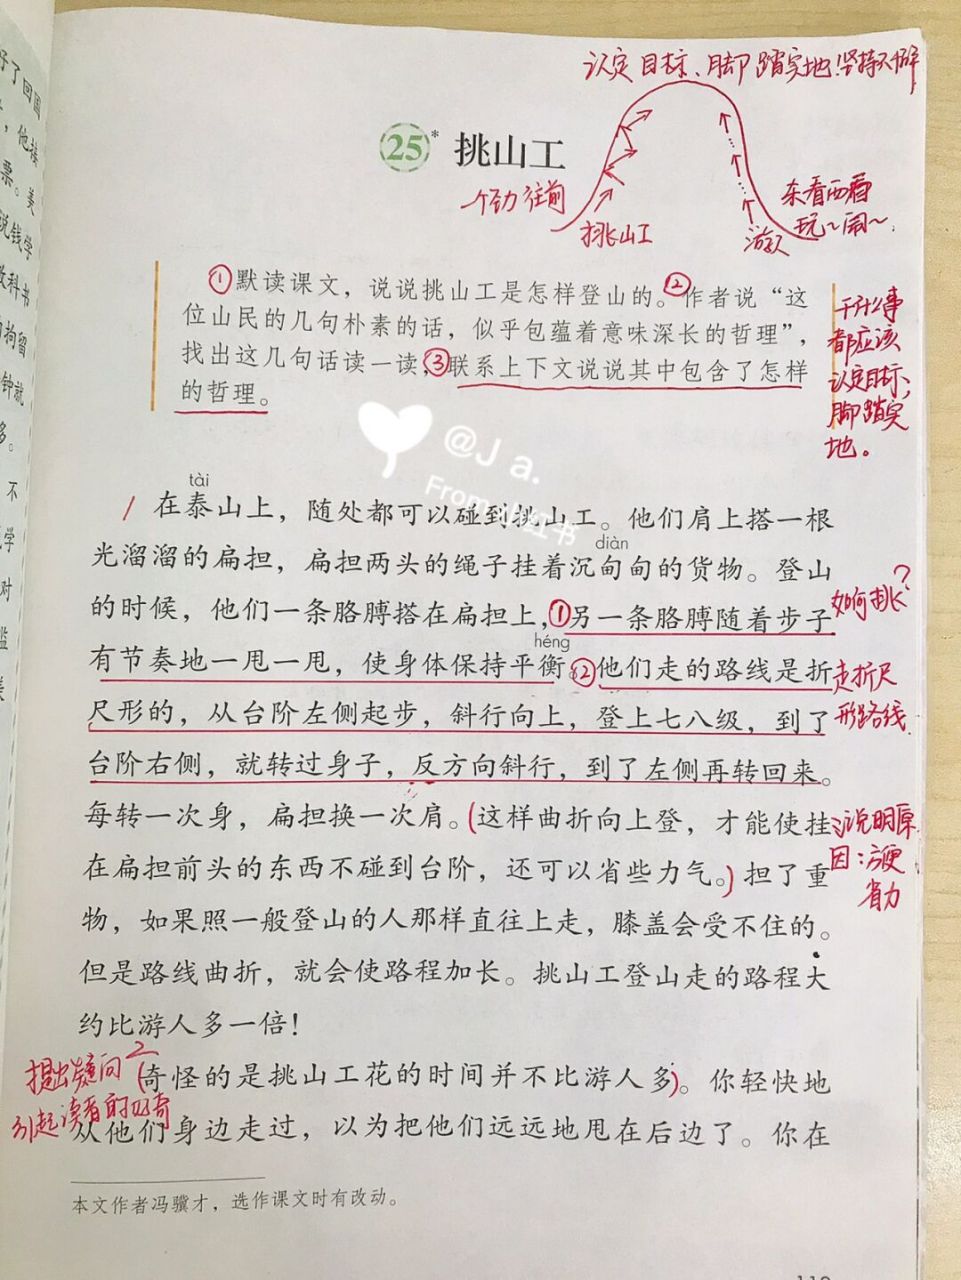 好了回国
，他操
票。美
说钱学
教科书
拘留
钟就
多。
不
学
对
监
美
认定目标、脚踏实地!坚持不懈
25* 挑山工
一个劲往前
挑山工
游人
东看西看
玩~闹~.
①默读课文，说说挑山工是怎样登山的。②作者说“这
位山民的几句朴素的话，似乎包蕴着意味深长的哲理”，
找出这几句话读一读，③联系上下文说说其中包含了怎样
的哲理。
干什么事
都应该
认定目标、
脚踏实
地。
@J a.
From 小红书
tài
1 在泰山上，随处都可以碰到挑山工。他们肩上搭一根
diàn
光溜溜的扁担，扁担两头的绳子挂着沉甸甸的货物。登山
的时候，他们一条胳膊搭在扁担上，①另一条胳膊随着步子
如何挑？
héng
有节奏地一甩一甩，使身体保持平衡。②他们走的路线是折
走折尺
尺形的，从台阶左侧起步，斜行向上，登上七八级，到了
形路线
台阶右侧，就转过身子，反方向斜行，到了左侧再转回来。
每转一次身，扁担换一次肩。(这样曲折向上登，才能使挂
说明原
在扁担前头的东西不碰到台阶，还可以省些力气。)担了重
因：方便
省力
物，如果照一般登山的人那样直往上走，膝盖会受不住的。
但是路线曲折，就会使路程加长。挑山工登山走的路程大
约比游人多一倍！
提出疑问
2 (奇怪的是挑山工花的时间并不比游人多)。你轻快地
引起读者的好奇
从他们身边走过，以为把他们远远地甩在后边了。你在
本文作者冯骥才，选作课文时有改动。